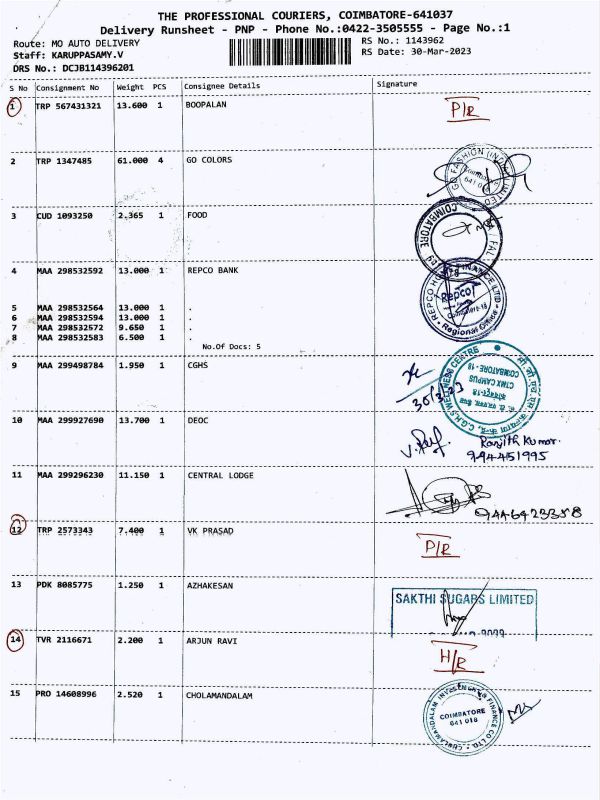 THE PROFESSIONAL COURIERS, COIMBATORE-641037
Delivery Runsheet - PNP - Phone No.:0422-3505555 - Page No.:1
Route: MO AUTO DELIVERY
RS No.: 1143962
Staff: KARUPPASAMY.V
RS Date: 30-Mar-2023
DRS No.: DCJB114396201
S No Consignment No Weight PCS Consignee Details Signature
1 TRP 567431321 13.600 1 BOOPALAN P/R
2 TRP 1347485 61.000 4 GO COLORS
GO FASHION (INDIA) LIMITED
Coimbatore
641 018
3 CUD 1093250 2.365 1 FOOD
COIMBATORE
4 MAA 298532592 13.000 1 REPCO BANK
Repco
Coimbatore-18
Regional Office
5 MAA 298532564 13.000 1 .
6 MAA 298532594 13.000 1 .
7 MAA 298532572 9.650 1 .
8 MAA 298532583 6.500 1 .
No.Of Docs: 5
9 MAA 299498784 1.950 1 CGHS
30/3/23
C.G.H.S WELLNESS CENTRE
CTMX CAMPUS
COIMBATORE - 18
10 MAA 299927690 13.700 1 DEOC
Ranjith Kumar.
994451995
11 MAA 299296230 11.150 1 CENTRAL LODGE
12 TRP 2573343 7.400 1 VK PRASAD P/R
13 PDK 8085775 1.250 1 AZHAKESAN
SAKTHI SUGARS LIMITED
14 TVR 2116671 2.200 1 ARJUN RAVI H/R
15 PRO 14608996 2.520 1 CHOLAMANDALAM
CHOLAMANDALAM INVESTMENT & FINANCE CO LTD.
COIMBATORE
641 018